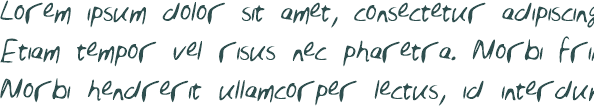 Lorem ipsum dolor sit amet, consectetur adipiscing
Etiam tempor vel risus nec pharetra. Morbi
Morbi hendrerit ullamcorper lectus, id